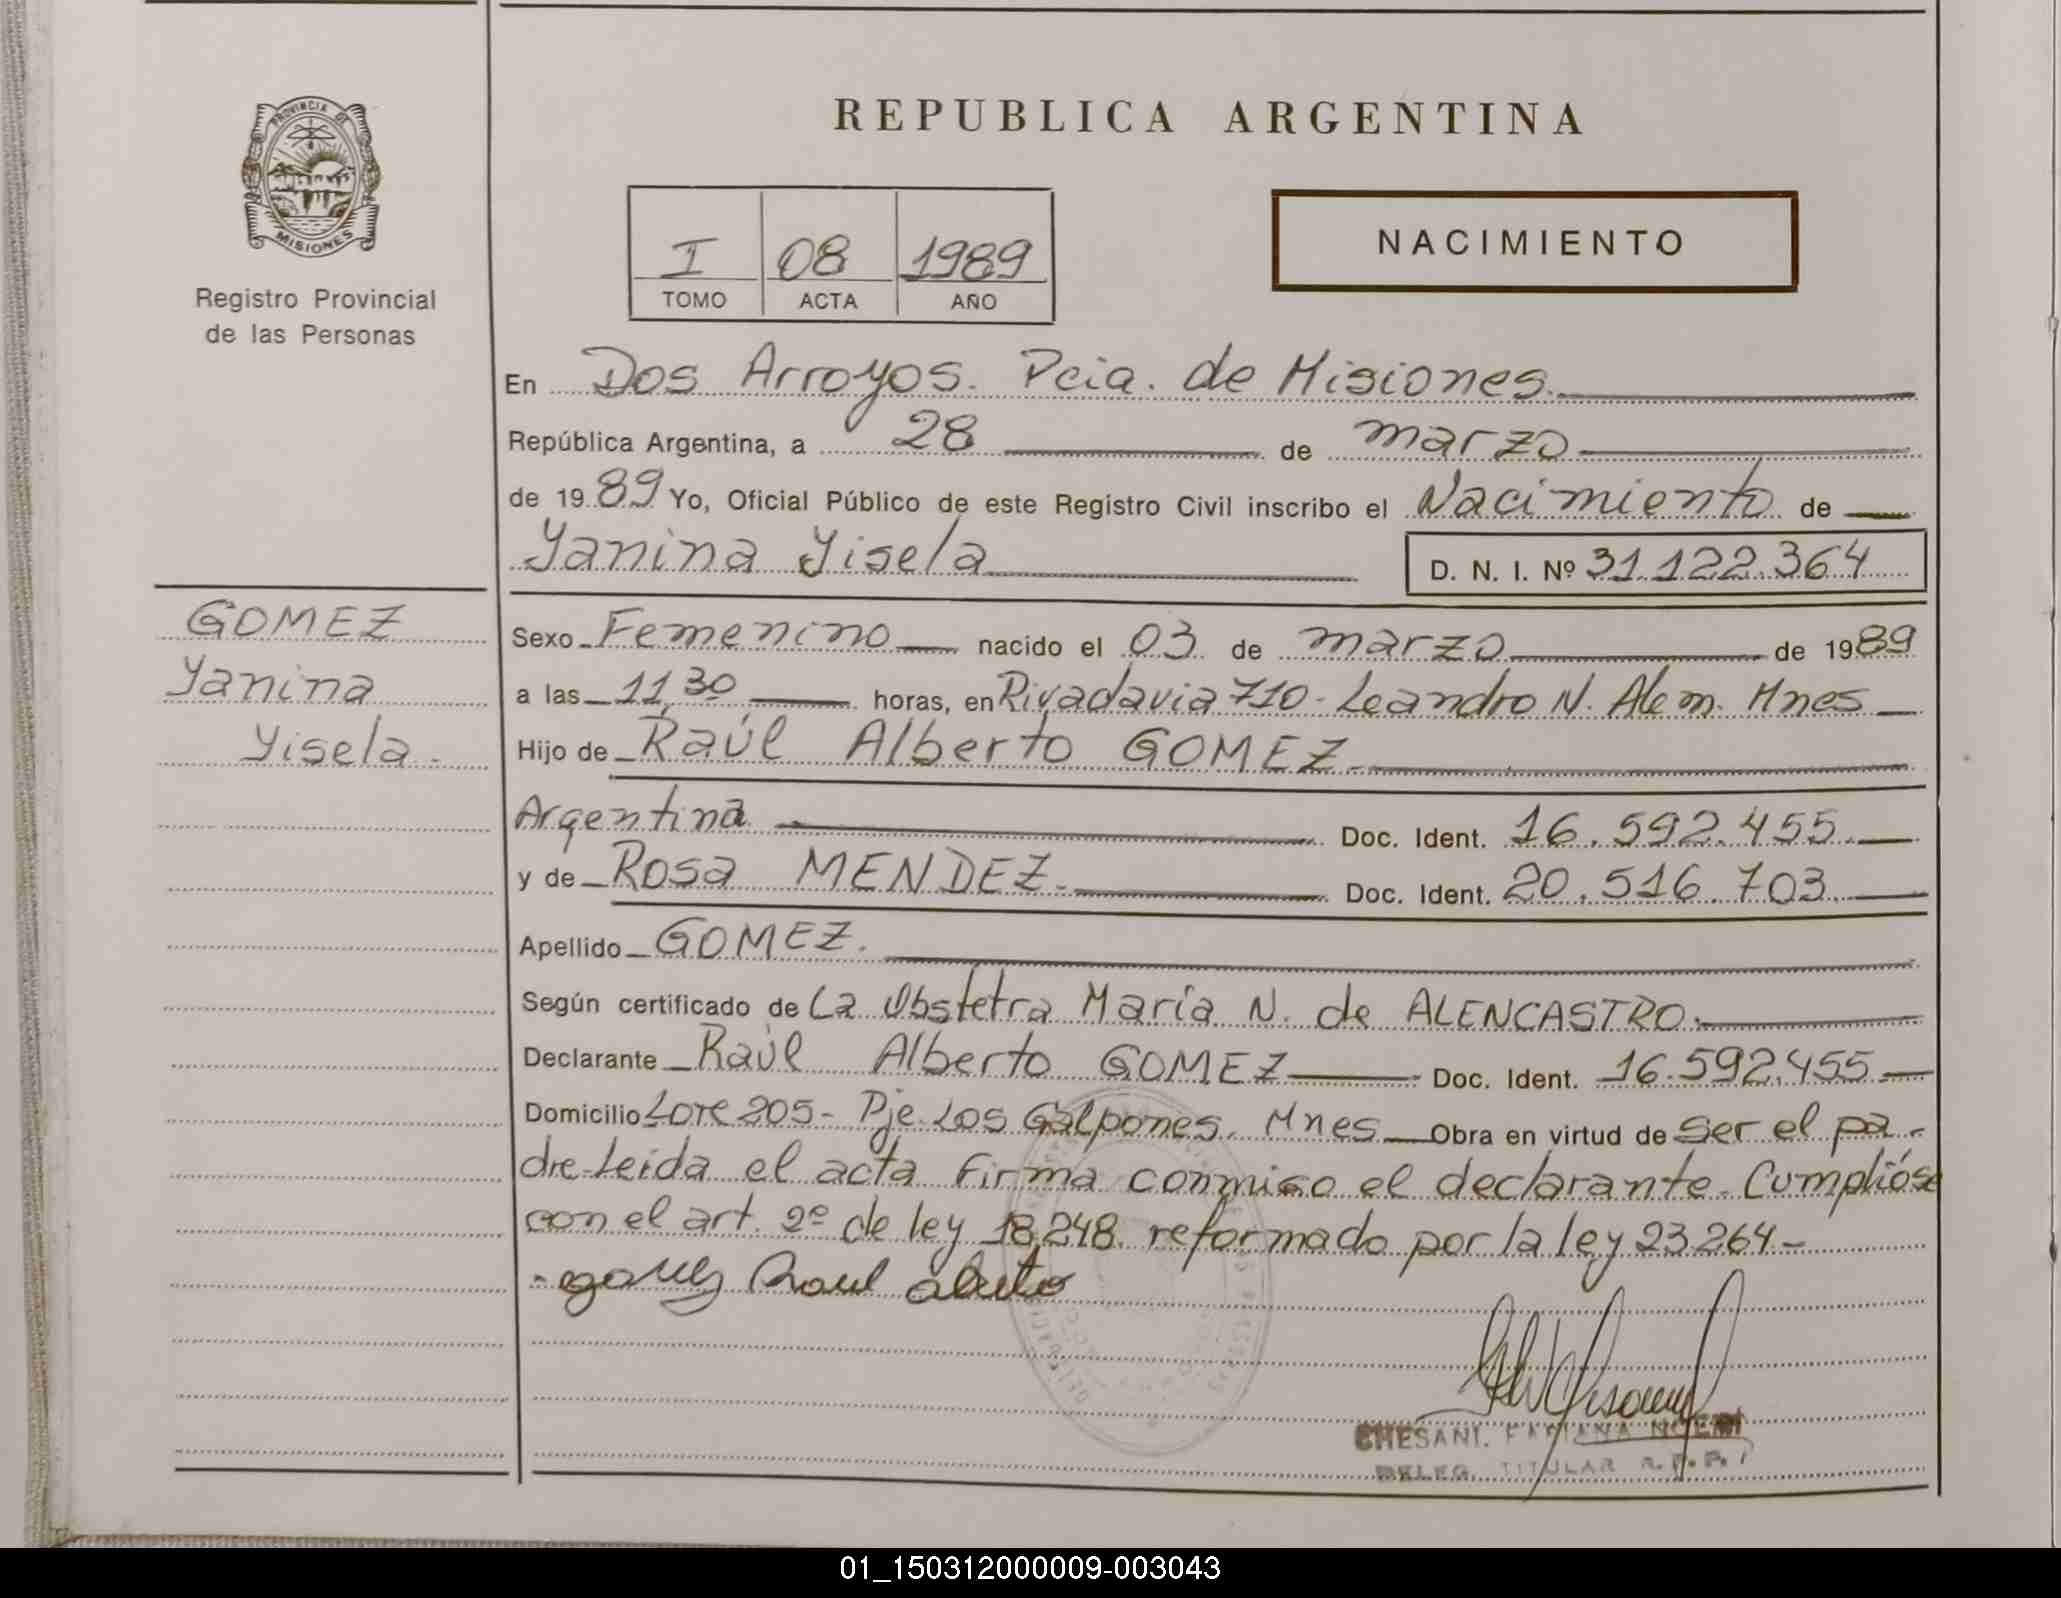 PROVINCIA DE
MISIONES
Registro Provincial
de las Personas
REPUBLICA ARGENTINA
I 08 1989
TOMO ACTA AÑO
NACIMIENTO
En Dos Arroyos. Pcia. de Misiones.
República Argentina, a 28 de marzo
de 1989 Yo, Oficial Público de este Registro Civil inscribo el Nacimiento de
Yanina Yisela
D. N. I. Nº 31.122.364
GOMEZ
Yanina
Yisela.
Sexo Femenino nacido el 03 de marzo de 1989
a las 11,30 horas, en Rivadavia 710 - Leandro N. Alem. Mnes
Hijo de Raúl Alberto GOMEZ.
Argentina Doc. Ident. 16.592.455.
y de Rosa MENDEZ. Doc. Ident. 20.516.703.
Apellido GOMEZ.
Según certificado de La Obstetra María N. de ALENCASTRO.
Declarante Raúl Alberto GOMEZ Doc. Ident. 16.592.455
Domicilio Lote 205 - Pje. Los Galpones. Mnes Obra en virtud de ser el pa-
dre-Leida el acta firma conmigo el declarante. Cumplióse
con el art. 2º de ley 18.248. reformado por la ley 23.264 -
gomez Raul alberto
CHESANI. FABIANA NOEMI
DELEG. TITULAR R.P.P.
01_150312000009-003043